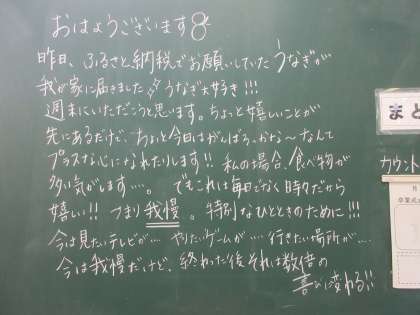 おはようございます
昨日、ふるさと納税でお願いしていたうなぎが
我が家に届きました うなぎ大好き!!!
週末にいただこうと思います。ちょっと嬉しいことが
先にあるだけで、ちょっと今日はがんばろっかな〜なんて
プラスな心になれたりします!! 私の場合、食べ物が
多い気がします....。 でもこれは毎日でなく時々だから
嬉しい!! つまり我慢。特別なひとときのために!!!
今は見たいテレビが.... やりたいゲームが.... 行きたい場所が....
今は我慢だけど、終わった後それは数倍の
喜びに変わる!!
まと
カウント
月
卒業式